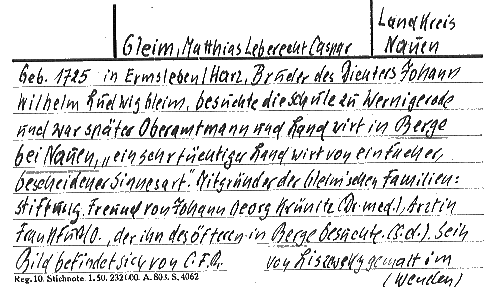 Landkreis
Gleim, Matthias Leberecht Caspar Nauen
Geb. 1725 in Ermsleben/Harz, Bruder des Dichters Johann
Wilhelm Ludwig Gleim, besuchte die Schule zu Wernigerode
und war später Oberamtmann und Landwirt in Berge
bei Nauen, „ein sehr tüchtiger Landwirt von einfacher,
bescheidener Sinnesart". Mitgründer der Gleimschen Familien=
stiftung. Freund von Johann Georg Krünitz (Dr. med.), Arzt in
Frankfurt/O., der ihn des öfteren in Berge besuchte (s. d.). Sein
Bild befindet sich von C.F.R. von Liszewsky gemalt im
Reg. 10. Stichnote. 1. 50. 232100. A. 803. S. 4062 (Wenden)